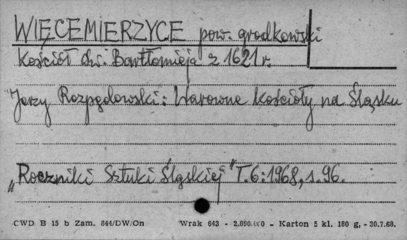 WIĘCEMIERZYCE pow. grodkowski
Kościół św. Bartłomieja z 1621 r.
Jerzy Rozpędowski: Warowne kościoły na Śląsku
„Roczniki Sztuki Śląskiej" T.6:1968, s.96.
CWD B 15 b Zam. 844/DW/On Wrak 643 - 2.000.000 - Karton 5 kl. 180 g, - 30.7.68.